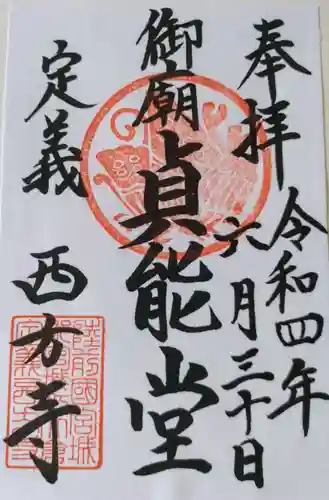 奉拝
令和四年
六月三十日
御廟
貞能堂
定義
西方寺